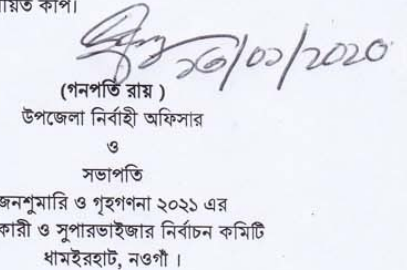 য়িত কাপ।
২৬/০১/২০২০
(গনপতি রায় )
উপজেলা নির্বাহী অফিসার
ও
সভাপতি
জনশুমারি ও গৃহগণনা ২০২১ এর
কারী ও সুপারভাইজার নির্বাচন কমিটি
ধামইরহাট, নওগাঁ ।